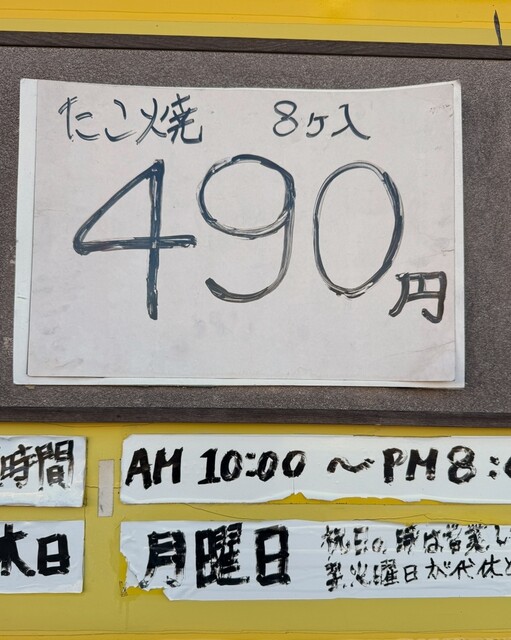 たこ焼 8ヶ入
490円
時間 AM 10:00 〜 PM 8:0
休日 月曜日 祝日の時は営業し
火曜日が代休と